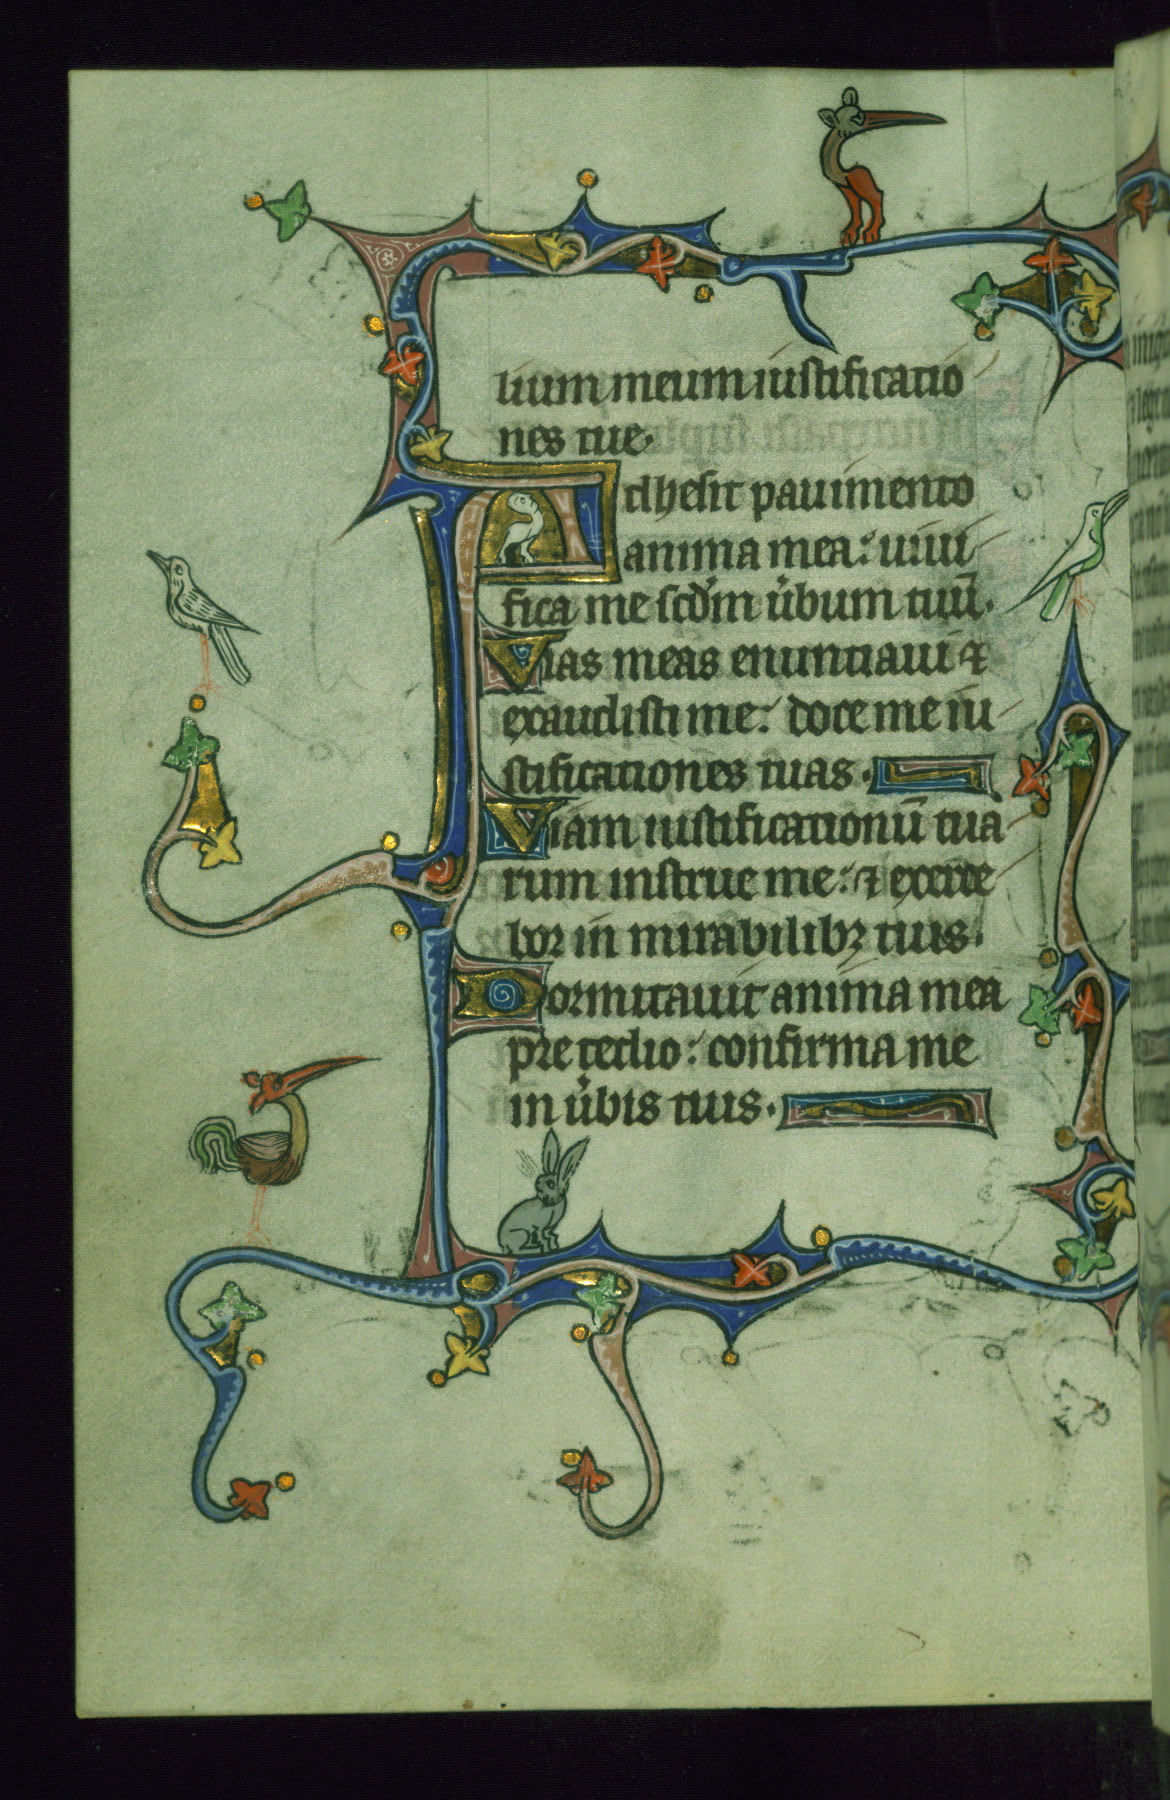 uum meum iustificatio
nes tue.
Adhesit pauimento
anima mea: uiui
fica me scdm ūbum tuū.
Vias meas enuntiaui ⁊
exaudisti me: doce me iu
stificationes tuas.
Viam iustificationū tua
rum instrue me: ⁊ exerce
bor in mirabilibꝫ tuis.
Dormitauit anima mea
pre tedio: confirma me
in ūbis tuis.